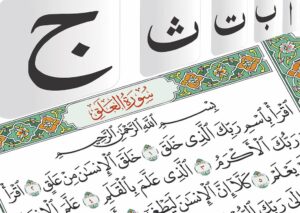 ا ب ت ث ج
سورة العلق
بسم الله الرحمن الرحيم
اقرأ باسم ربك الذي خلق ١ خلق الإنسن من علق ٢ اقرأ
وربك الأكرم ٣ الذي علم بالقلم ٤ علم الإنسن
يعلم ٥ كلا إن الإنسن ليطغى